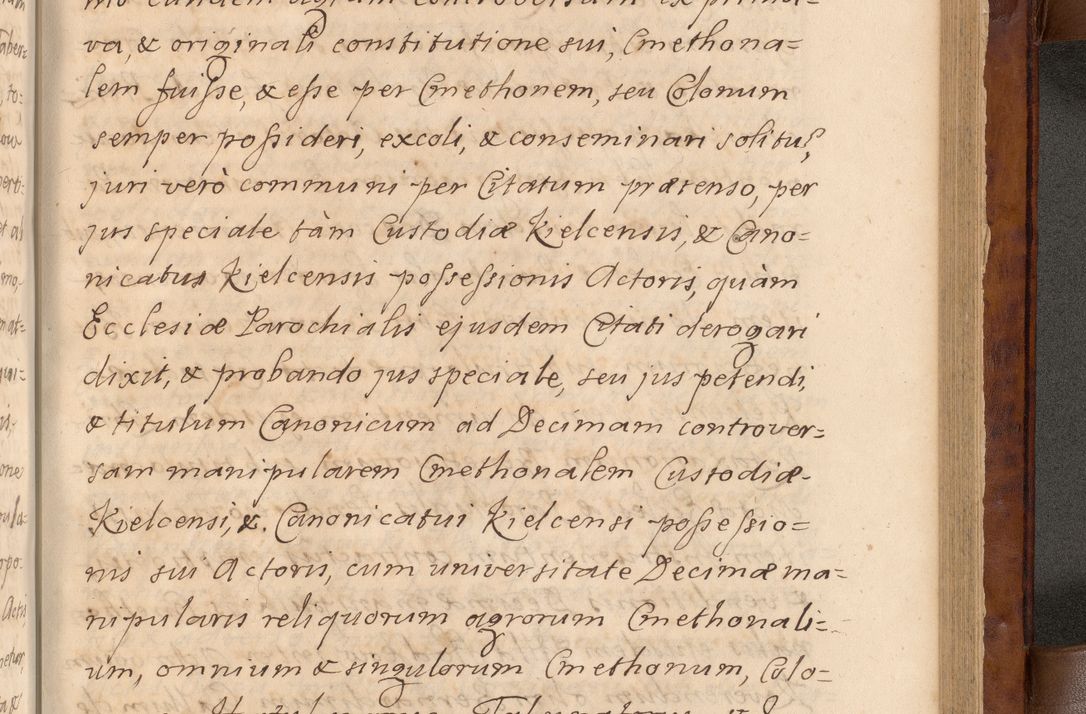 mo eundem agrum controversum ex prima=
va, & originali constitutione sui, Cmethona=
lem fuisse, & esse per Cmethonem, seu Colonum
semper possideri, excoli, & conseminari solitu,
juri verò communi per Citatum prætenso, per
jus speciale tàm Custodiæ Kielcensis, & Cano=
nicatus Kielcensis possessionis Actoris, quàm
Ecclesiæ Parochialis ejusdem Citati derogari
dixit, & probando jus speciale, seu jus petendi,
& titulum Canonicum ad Decimam controver=
sam manipularem Cmethonalem Custodiæ
Kielcensi, &. Canonicatui Kielcensi possessio=
nis sui Actoris, cum universitate Decimæ ma=
nipularis reliquorum agrorum Cmethonali=
um, omnium & singulorum Cmethonum, Colo=